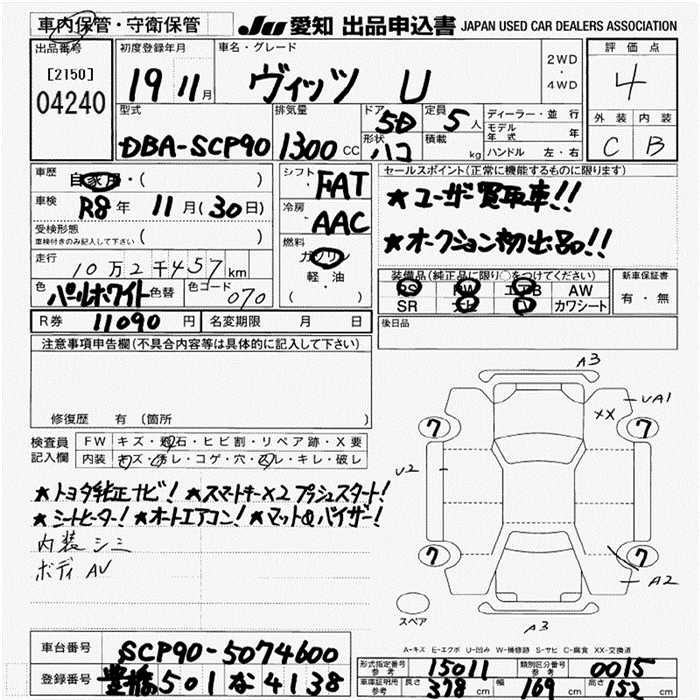 車内保管・守衛保管 JU 愛知 出品申込書 JAPAN USED CAR DEALERS ASSOCIATION
出品番号 初度登録年月 車名・グレード 評価点
[2150] 19 11月 ヴィッツ U 2WD・4WD 4
04240
型式 排気量 ドア 5D 定員 5人 ディーラー・並行 外装 内装
モデル年式 年
DBA-SCP90 1300CC 形状 ハコ 積載 kg ハンドル 左・右 C B
車歴 自家用・( ) シフト FAT セールスポイント(正常に機能するものに限ります)
車検 R8年 11月(30日) 冷房 AAC ★ユーザー買取車!!
受検形態 ( )
車検付きのみ記入して下さい
★オークション初出品!!
走行 10万2千457km 燃料 ガソリン
軽・油
( )
装備品(純正品に限り○をつけてください) 新車保証書
色 パールホワイト 色替 色コード 070 PS PW エアB AW 有・無
SR ナビ TV カワシート
R券 11090円 名変期限 月 日 後日品
注意事項申告欄(不具合内容等は具体的に記入して下さい)
修復歴 有 (箇所
検査員記入欄 FW キズ・飛石・ヒビ割・リペア跡・X要
内装 キズ・汚レ・コゲ・穴・スレ・キレ・破レ
★トヨタ純正ナビ! ★スマートキー×2プッシュスタート!
★シートヒーター! ★オートエアコン! ★マット&バイザー!
内装 シミ
ボディ AU
A3
UA1
XX
7 7
U2
7 7
A2
スペア
A3
A-キズ E-エクボ U-凹み W-補修跡 S-サビ C-腐食 XX-交換済
車台番号 SCP90-5074600
登録番号 豊橋 501 な 4138
形式指定番号 参考 15011 類別区分番号 参考 0015
車庫証明用 参考 長さ 378cm 幅 169cm 高さ 152cm